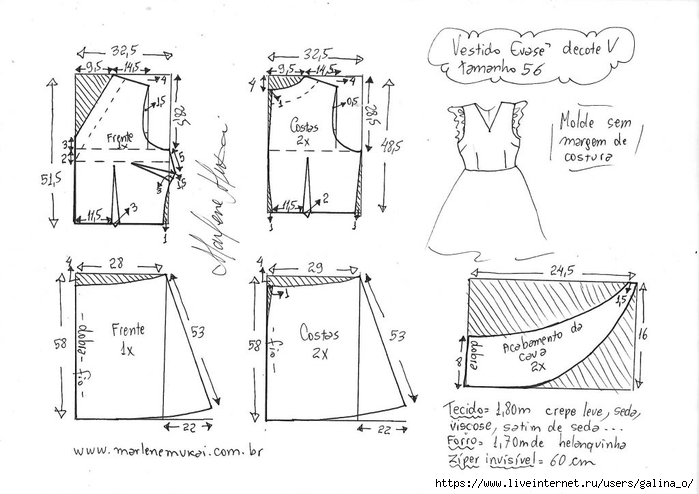 Vestido Evasê decote V
tamanho 56
Molde sem
margem de
costura
32,5
9,5
14,5
4
1,5
28,5
Frente
1x
3
2
51,5
5
1,5
3
11,5
3
1
32,5
9,5
14,5
4
4
1
0,5
28,5
Costas
2x
48,5
11,5
2
1
1
Marlene Mukai
4
28
58
Frente
1x
- dobra - fio -
53
22
4
29
1
58
Costas
2x
- fio -
53
22
24,5
1,5
16
Acabamento da
cava
2x
dobra
8
Tecido = 1,80m crepe leve, seda,
viscose, satim de seda...
Forro = 1,70m de helanquinha
Zíper invisível = 60 cm
www.marlenemukai.com.br
https://www.liveinternet.ru/users/galina_o/